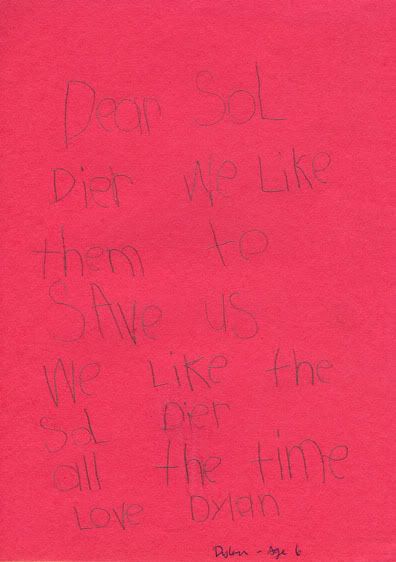 Dear SoL
Dier We Like
them to
SAve us
We Like the
SoL Dier
all the time
Love Dylan
Dylan - Age 6